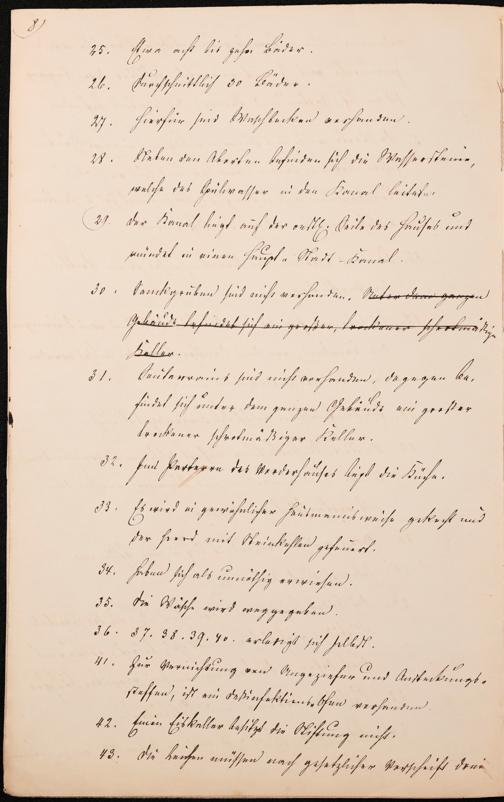 8)
25. Etwa acht bis zehn Bäder.
26. Durchschnittlich 50 Bäder.
27. Hierfür sind Waschbecken vorhanden.
28. Neben den Aborten befinden sich die Wassersteine,
welche das Spülwasser in den Kanal leiten.
29. Der Kanal liegt auf der östl. Seite des Hauses und
mündet in einen Haupt-Stadt-Kanal.
30. Senkgruben sind nicht vorhanden. Unter dem ganzen
Gebäude befindet sich ein großer, trockener schrotmäßiger
Keller.
31. Souterrains sind nicht vorhanden, dagegen be-
findet sich unter dem ganzen Gebäude ein großer
trockener schrotmäßiger Keller.
32. Im Parterre des Vorderhauses liegt die Küche.
33. Es wird in gewöhnlicher Hausmannsweise gekocht und
der Heerd mit Steinkohlen gefeuert.
34. Haben sich als unnöthig erwiesen.
35. Die Wäsche wird weggegeben.
36. 37. 38. 39. 40. erledigt sich selbst.
41. Zur Vernichtung von Ungeziefer und Ansteckungs-
stoffen, ist ein Desinfektions-Ofen vorhanden
42. Einen Eiskeller besitzt die Stiftung nicht.
43. Die Leichen müssen nach gesetzlicher Vorschrift drei